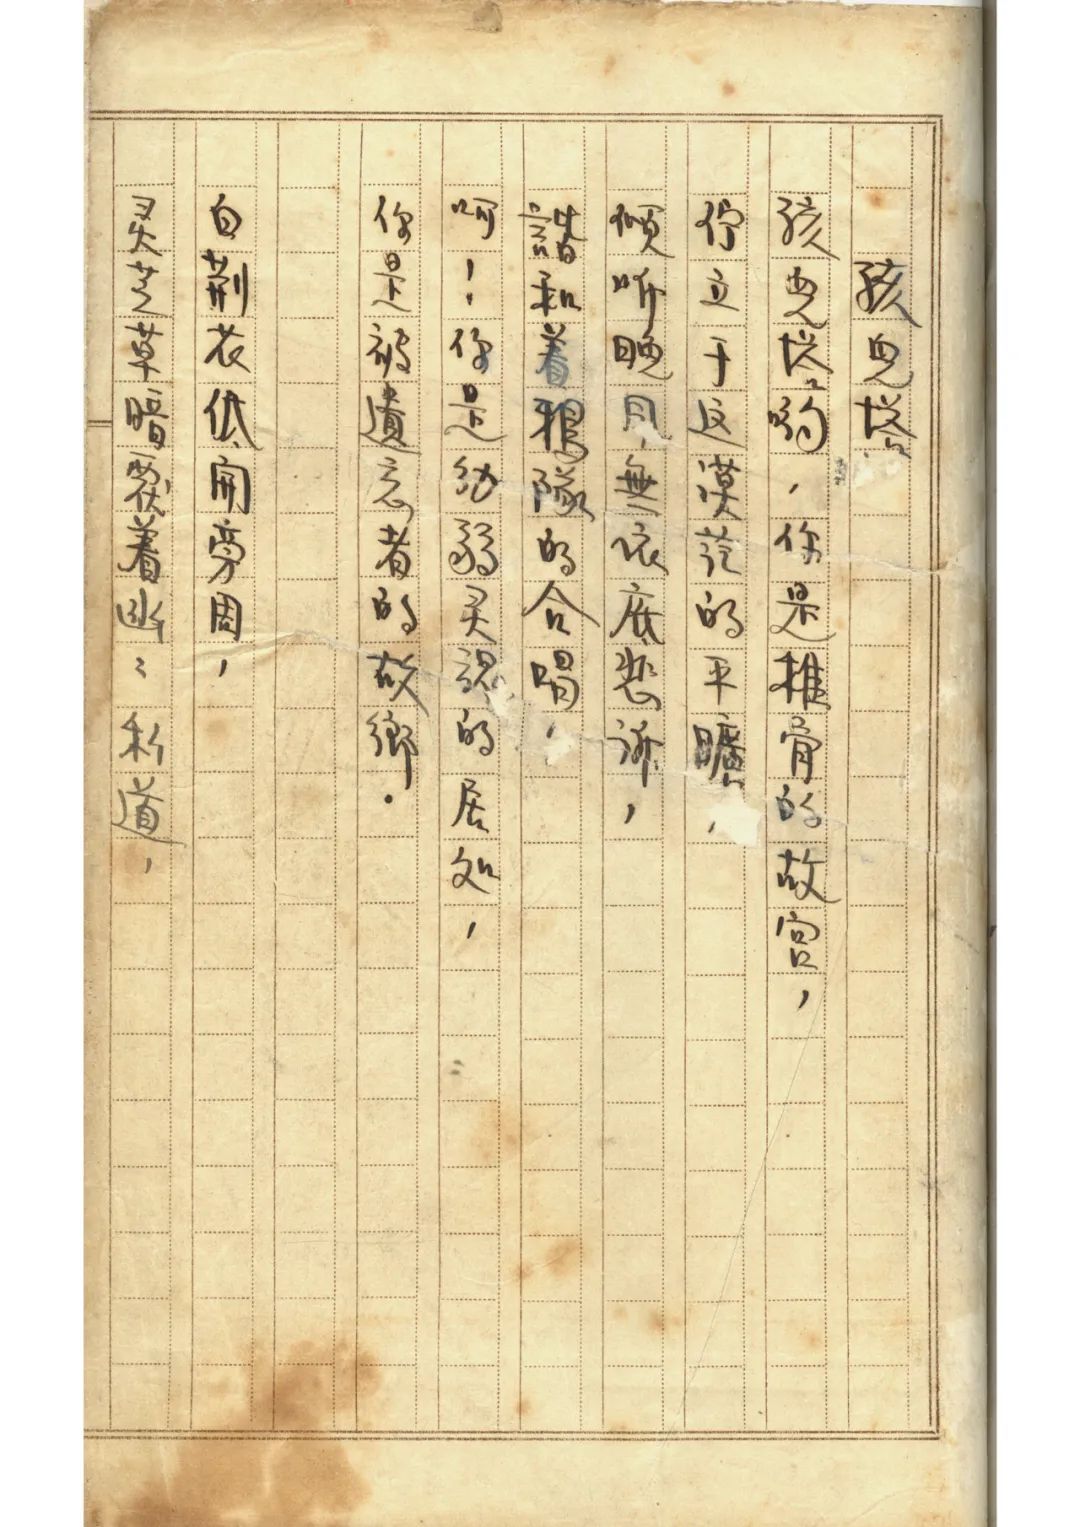 孩兒塔
孩兒塔哟，你是稚骨的故宫，
佇立于这漠茫的平曠，
傾听晚風無依底悲訴，
諧和着鴉隊的合唱，
呵！你是幼弱灵魂的居处，
你是被遺忘者的故鄉．
白荆花低開旁周，
灵芝草暗覆着幽々私道，